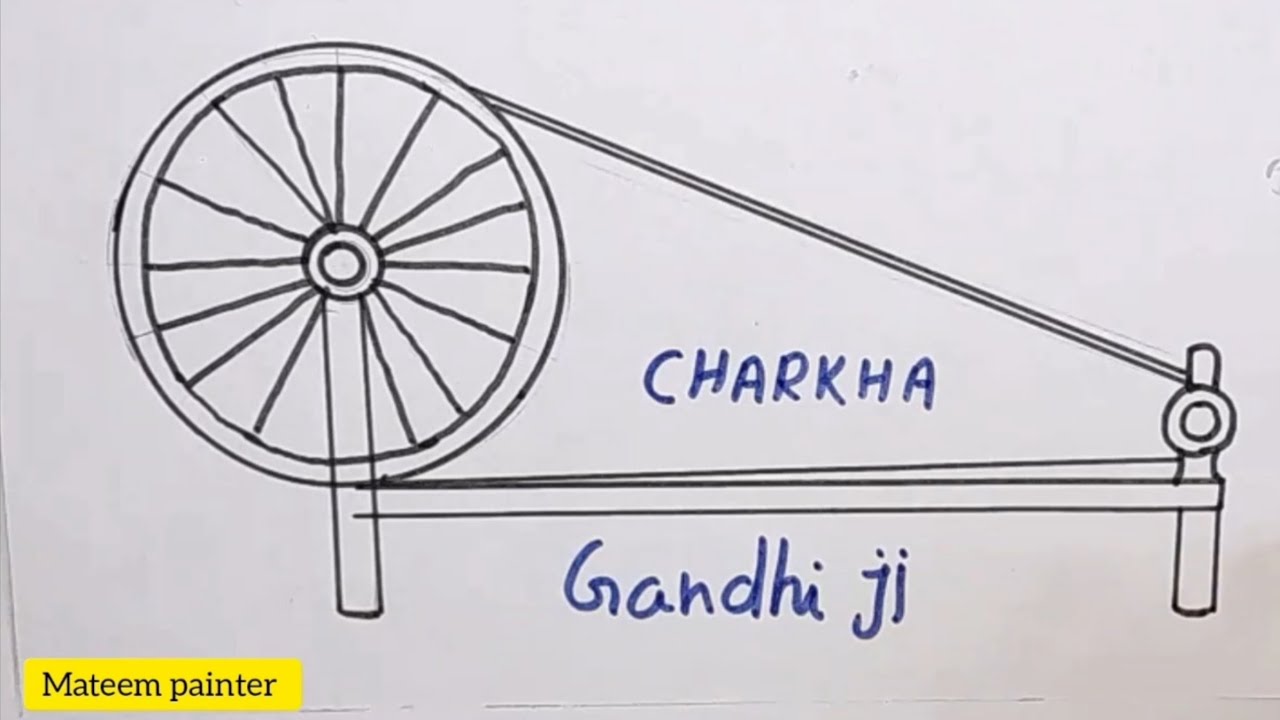 CHARKHA
Gandhi ji
Mateem painter